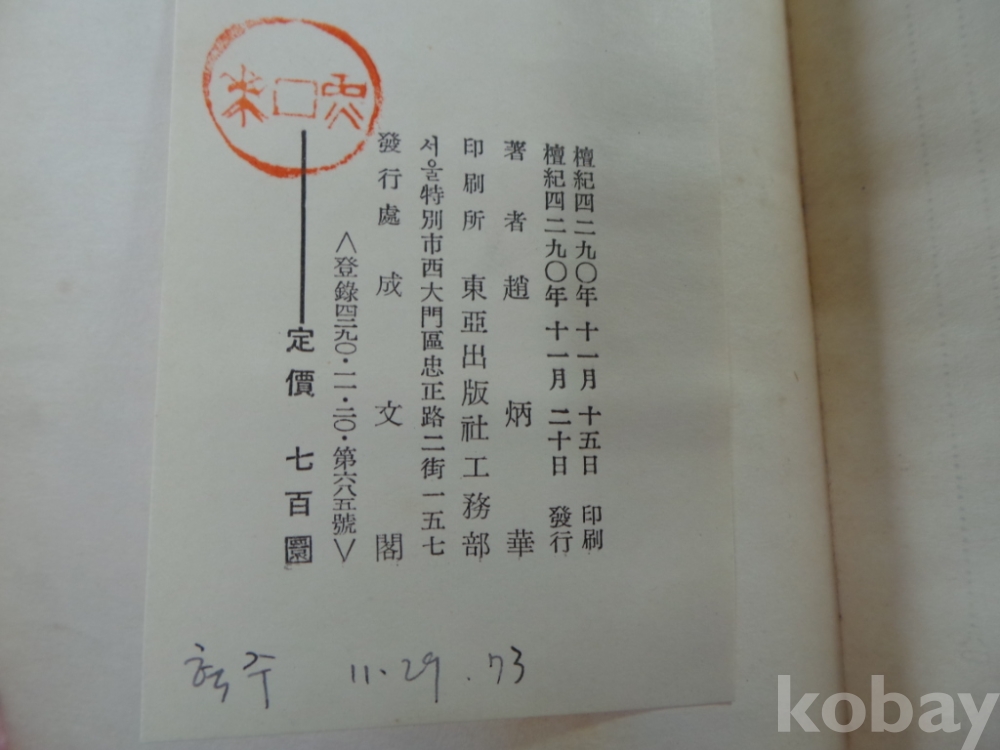 檀紀四二九〇年 十一月 十五日 印刷
檀紀四二九〇年 十一月 二十日 發行
著者 趙炳華
印刷所 東亞出版社工務部
서울特別市西大門區忠正路二街一五七
發行處 成文閣
<登錄四二九〇·一一·二〇·第六八五號>
定價 七百圜
11.29.73
kobay